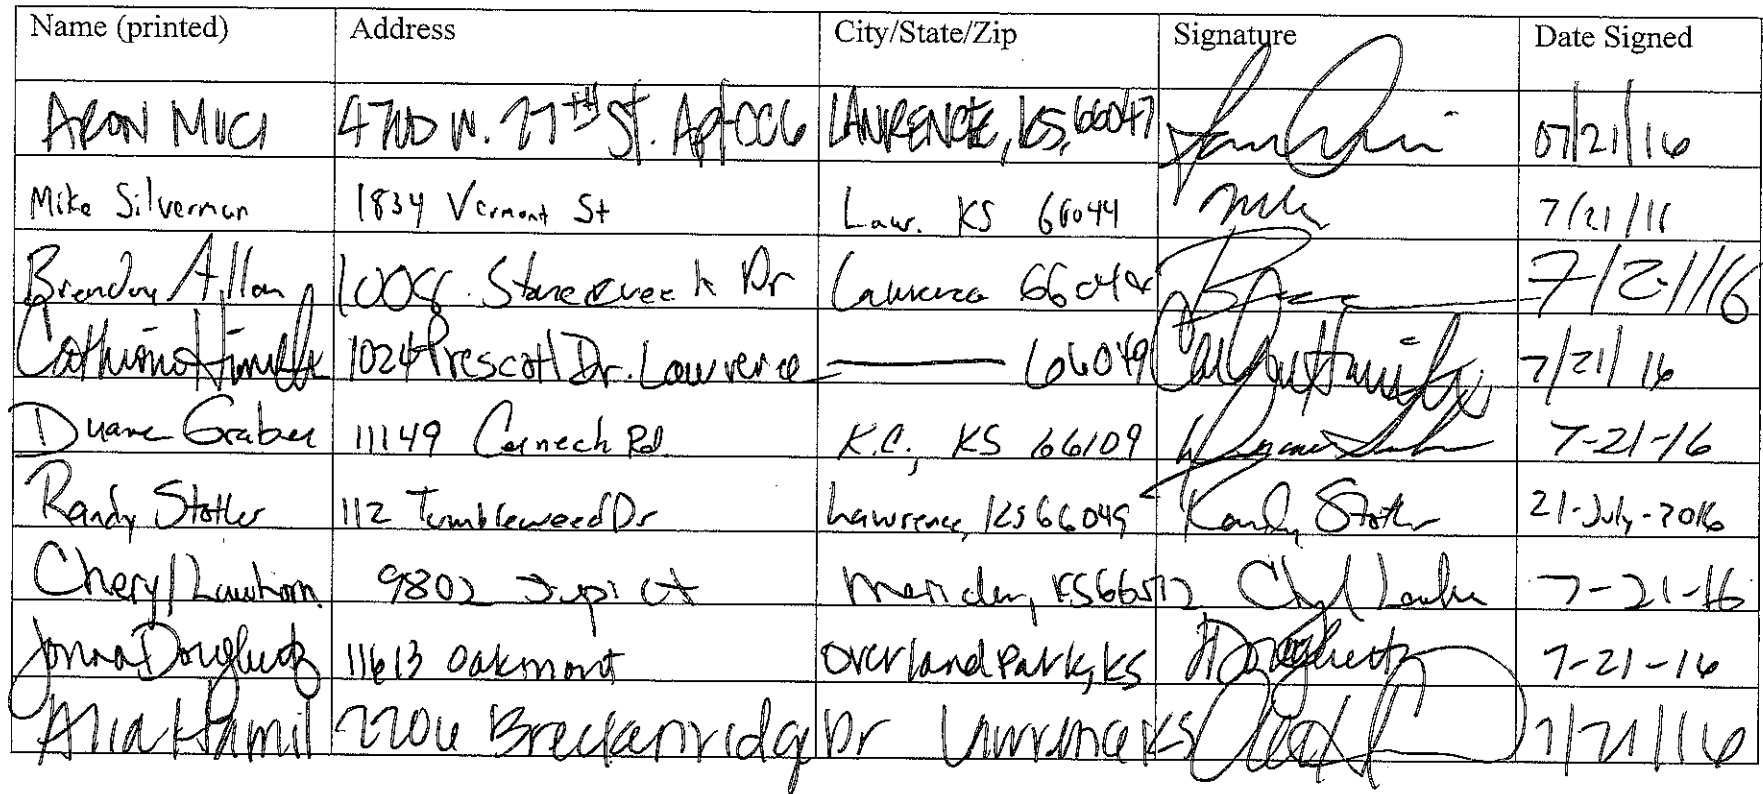 Name (printed) Address City/State/Zip Signature Date Signed
ARON MUCI W. 27th St. Apt CC6 LAWRENCE, KS, 66047 07/21/16
Mike Silverman 1834 Vermont St Law. KS 66044 Mike 7/21/16
Brendan Allan Dr Lawrence 7/21/16
1024 Prescott Dr. Lawrence 66049 7/21/16
Duane Graber 11149 Rd. K.C., KS 66109 7-21-16
Randy Stotler 112 Tumbleweed Dr Lawrence, KS 66049 Randy Stotler 21-July-2016
Cheryl Lawhorn 9802 Ct Meriden, KS 66512 7-21-16
Jonna 11613 Oakmont Overland Park, KS 7-21-16
Hamil 2206 Breckenridge Dr Lawrence KS 7/21/16